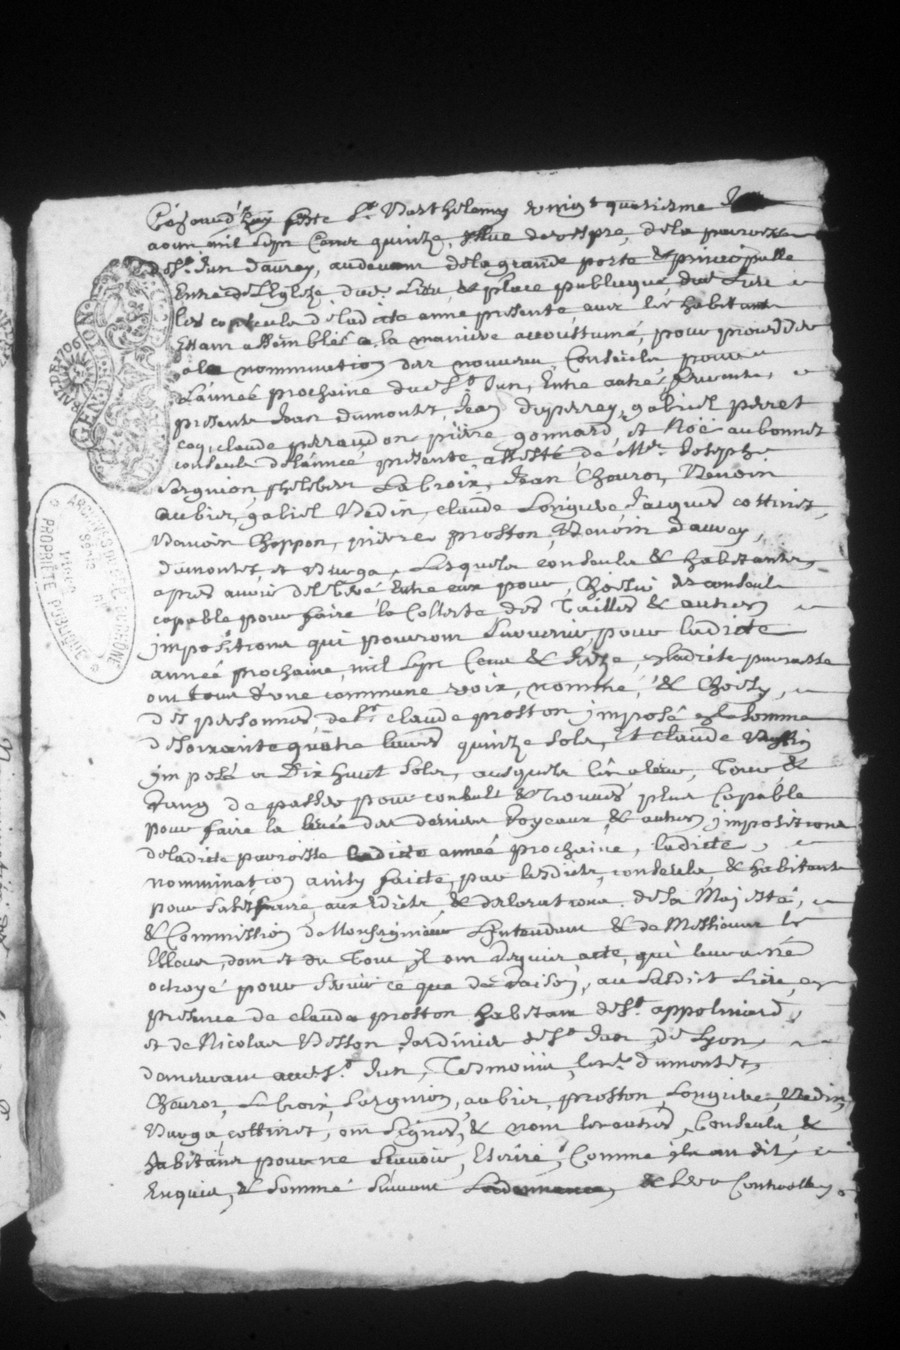 Cejourd'huy feste St Barthelemy vingt quatriesme
aoust mil sept cens quinze, issue de vespre, de la parroisse
de St Jun dauray, audevant de la grande porte & principalle
Entrée de Leglize dud Lieu & place publicque dud Lieu
les consculs de ladicte anne presente avec les habitans
Estant assemblés a la maniere accoustumé, pour proceder
a la nommination des nouveau Conseuls pour
L'année prochaine dud St Jun, Entre autre
presente Jean dumontet, Jean duperrey, gabriel perret
claude perraud on pierre gonnard, et Noë aubonnet
conseuls de L'anneé presente assisté de Mre Joseph
Sargnion, Labroix, Jean Chouror, Benoin
aubier, gabiel Vedin, claude Longieve Jacques cottinet,
Benoin Choppon, pierre proston, Benoin dauray,
dumontet, et Burga, Lesquels conseuls & habitants
apres avoir deLiberé Entre eux pour Choisir des conseuls
capable pour faire la Collecte des Tailles & autres
impositions qui pourront survenir, pour ladicte
année prochaine, mil sept Cens & seize, ladicte parroisse
ont tous d'une commune voix, nommé, & Choisy,
des personnes de Sr claude proston imposé a la somme
de soixante quatre livres quinze sols, et claude
imposé a Dix huit sols, ausquels Tour &
Rang de passer pour conseuls & trouvés plus Capable
pour faire la levée des deniers Royeaux & autres impositions
de ladicte parroisse ladicte année prochaine, ladicte,
nommination ainsy faicte par lesdicts, conseuls, & habitants
pour satisfaire aux Edicts, & declarations de sa Majesté,
& Commission de Monseigneur L'Intendant & de Messieurs les
Esleus, dont et du Tout il ont Requis acte, qui leur a esté
octroyé pour servir ce que de Raison, au susdict Lieu en
presence de claude proston habitant de St appolinard,
et de Nicolas Besson Jardinier de St Jean de Lyon,
demeurant aud St Jun, Tesmoins, lesd dumontet,
Chouror, Labroix, Sargnion, aubier, proston, Longieve, Vedin,
Burga, cottinet, ont signés, & nom les autres, Conseuls &
habitans pour ne scavoir, Escrire, Comme ils ont dit,
Enquis, & Sommé suivant Lordonnance, & sera Controollé.
GEN. DE LYON
ARCHIVES DU DÉP. DU RHÔNE
PROPRIÉTÉ PUBLIQUE